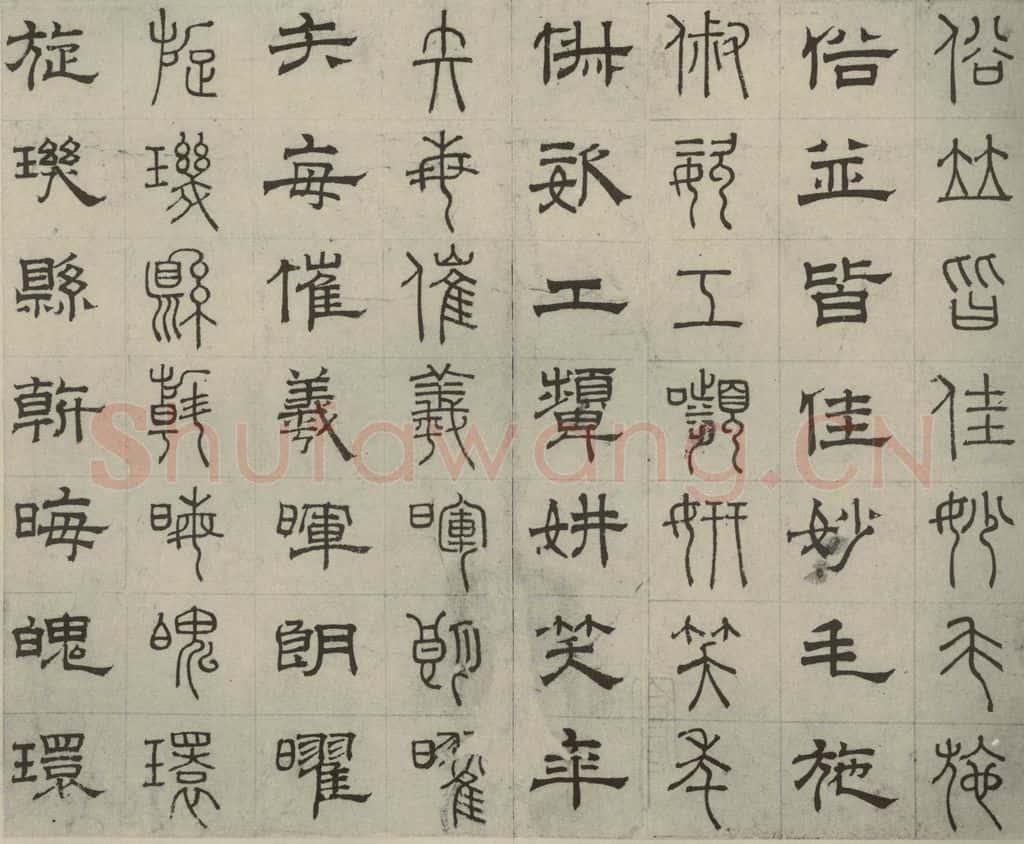 俗竝皆佳妙毛施
俗並皆佳妙毛施
俶姿工顰妍笑年
俶姿工顰妍笑年
矢每催羲暉朗曜
矢每催羲暉朗曜
旋璣縣斡晦魄環
旋璣縣斡晦魄環
Shufawang.CN